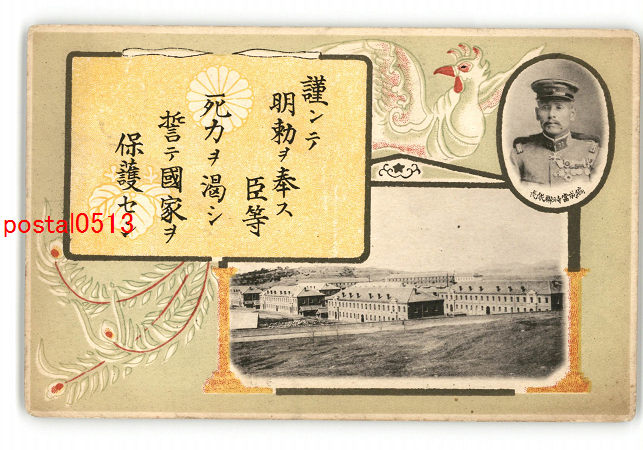 謹ンテ
明勅ヲ奉ス
臣等
死力ヲ渇シ
誓テ國家ヲ
保護セン
postal0513